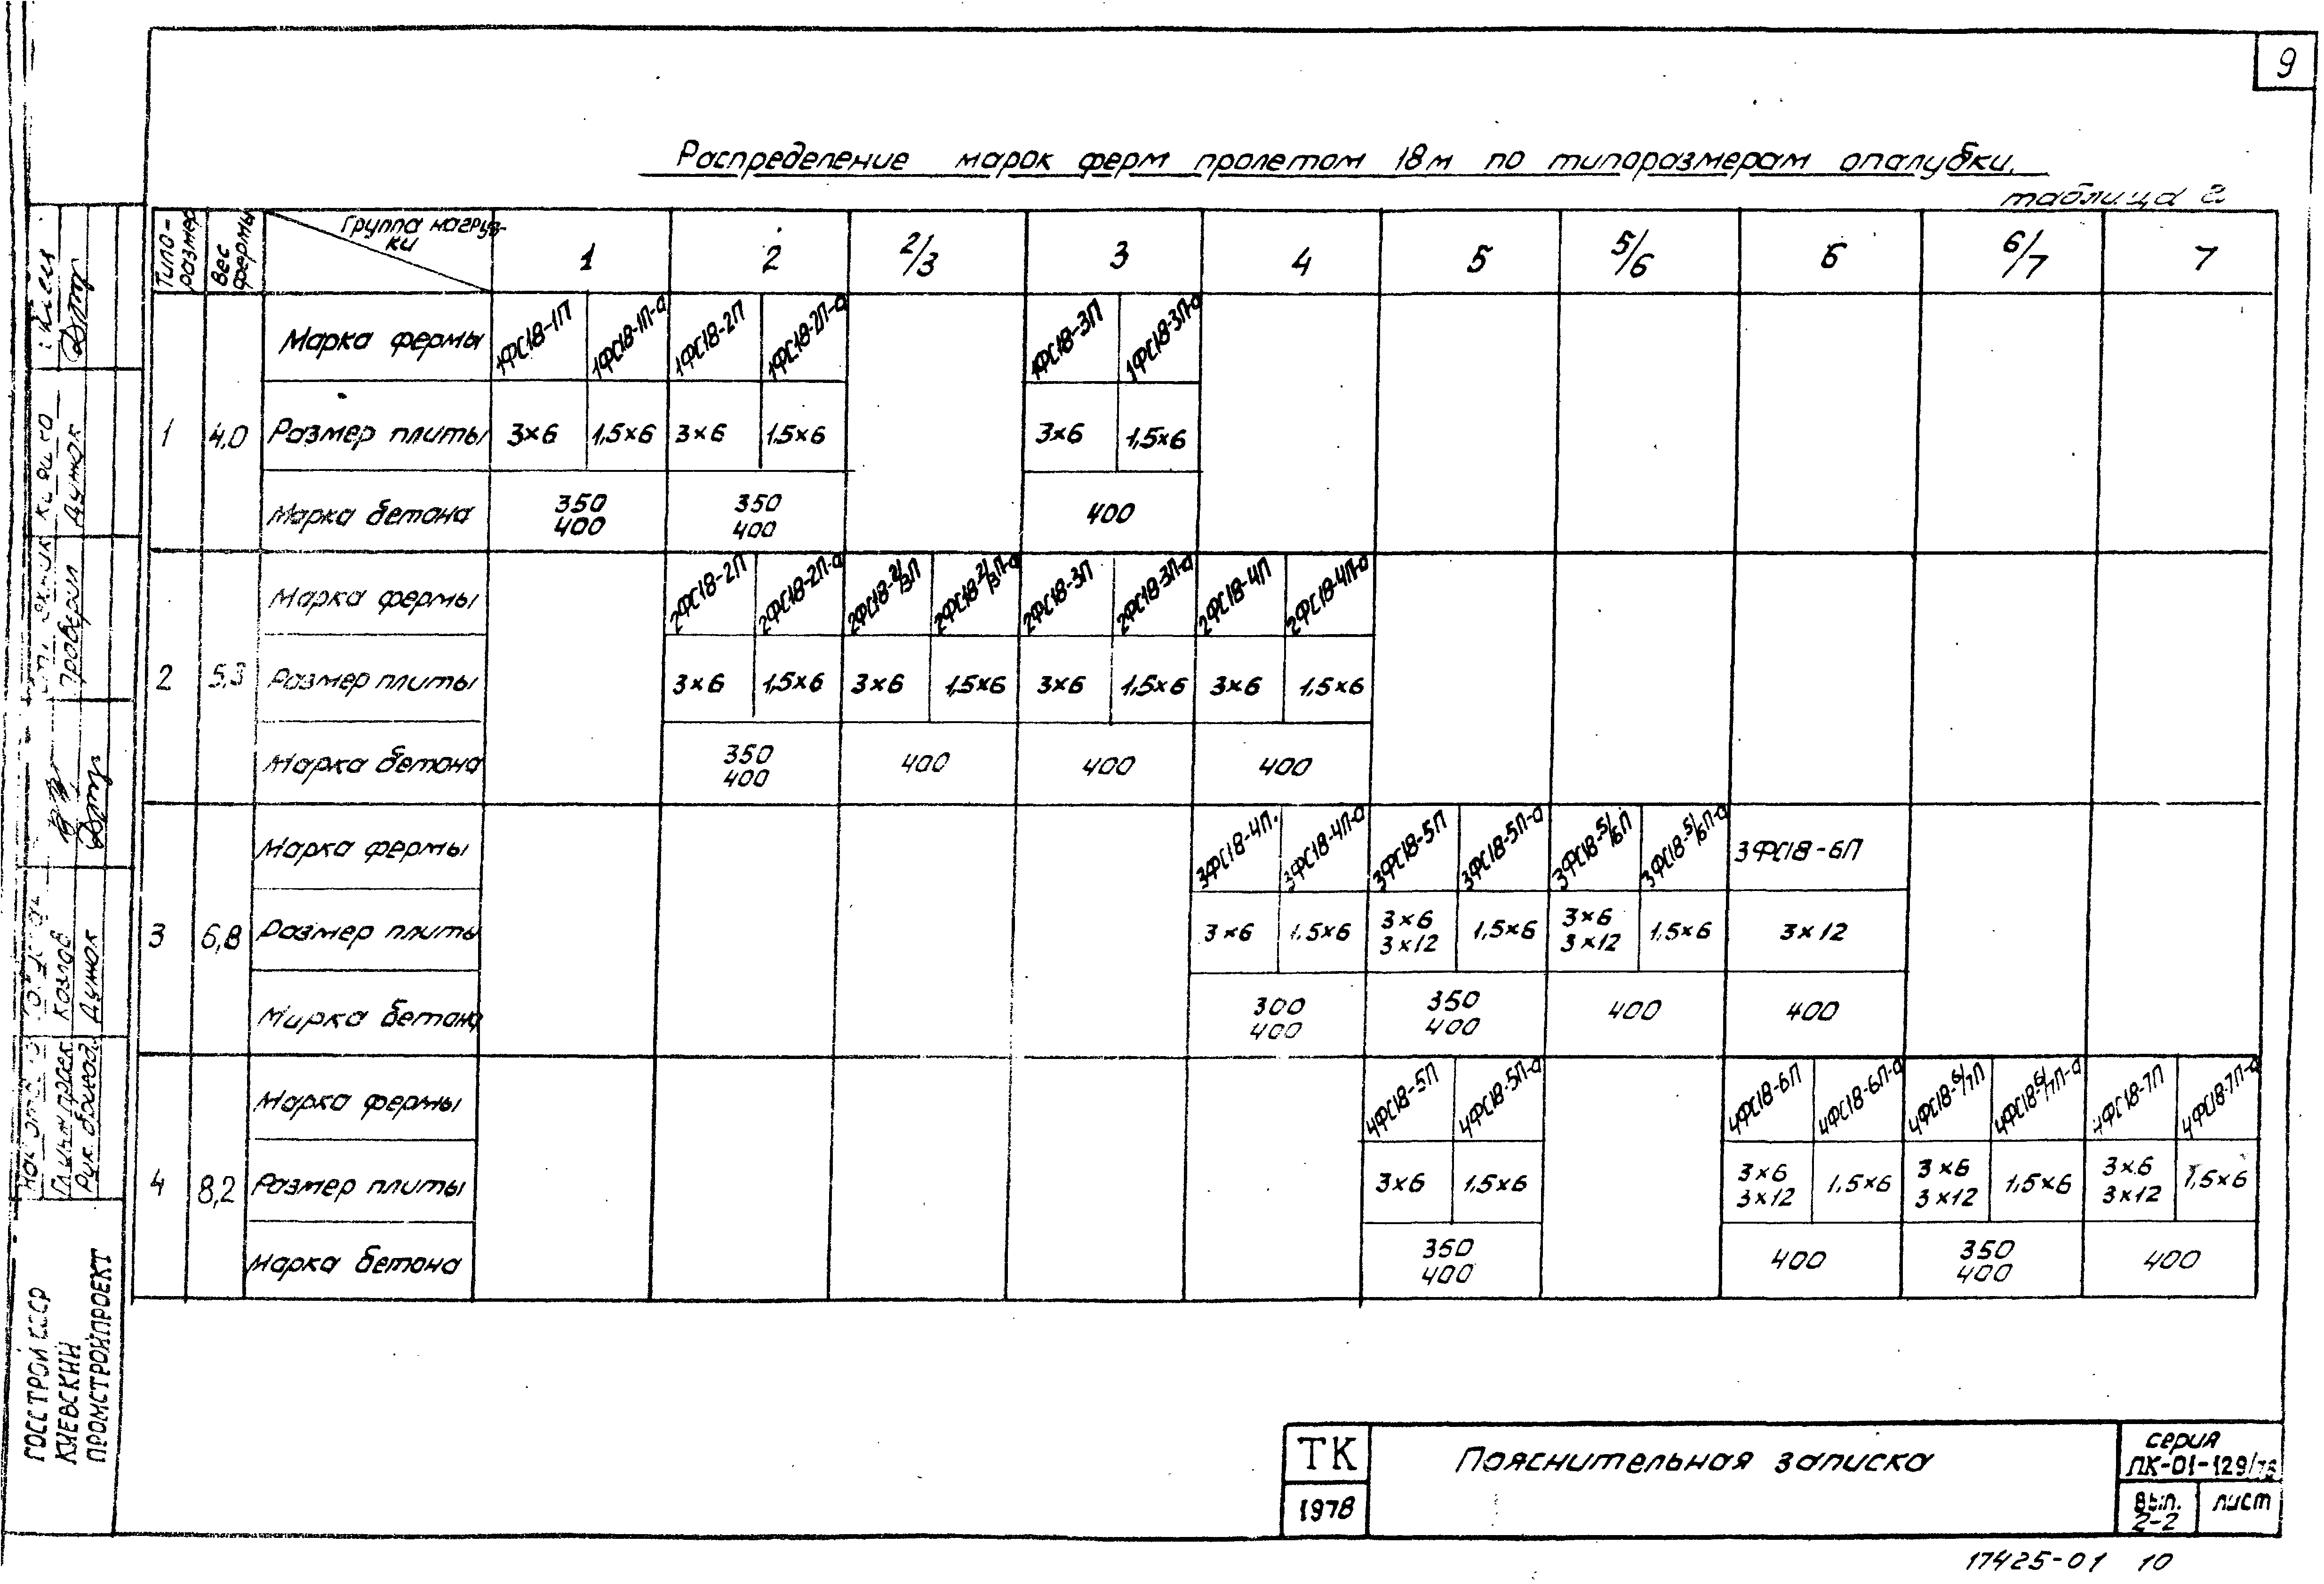 9
Распределение марок ферм пролетом 18м по типоразмерам опалубки.
таблица 2
Типо-
размер
Вес
фермы
Группа нагруз-
ки
1 2 2/3 3 4 5 5/6 6 6/7 7
Марка фермы 1ФС18-1П 1ФС18-1П-а 1ФС18-2П 1ФС18-2П-а 1ФС18-3П 1ФС18-3П-а
1 4,0 Размер плиты 3×6 1,5×6 3×6 1,5×6 3×6 1,5×6
Марка бетона 350 400 350 400 400
Марка фермы 2ФС18-2П 2ФС18-2П-а 2ФС18-2/3П 2ФС18-2/3П-а 2ФС18-3П 2ФС18-3П-а 2ФС18-4П 2ФС18-4П-а
2 5,3 Размер плиты 3×6 1,5×6 3×6 1,5×6 3×6 1,5×6 3×6 1,5×6
Марка бетона 350 400 400 400 400
Марка фермы 3ФС18-4П. 3ФС18-4П-а 3ФС18-5П 3ФС18-5П-а 3ФС18-5/6П 3ФС18-5/6П-а 3ФС18-6П
3 6,8 Размер плиты 3×6 1,5×6 3×6 3×12 1,5×6 3×6 3×12 1,5×6 3×12
Марка бетона 300 400 350 400 400 400
Марка фермы 4ФС18-5П 4ФС18-5П-а 4ФС18-6П 4ФС18-6П-а 4ФС18-6/7П 4ФС18-6/7П-а 4ФС18-7П 4ФС18-7П-а
4 8,2 Размер плиты 3×6 1,5×6 3×6 3×12 1,5×6 3×6 3×12 1,5×6 3×6 3×12 1,5×6
Марка бетона 350 400 400 350 400 400
Проверил Дуток
Козлов
Рук. бригад. Дуток
ГОССТРОЙ СССР
КИЕВСКИЙ
ПРОМСТРОЙПРОЕКТ
ТК
1978
Пояснительная записка
серия
ПК-01-129/78
Вып.
2-2
лист
17425-01 10